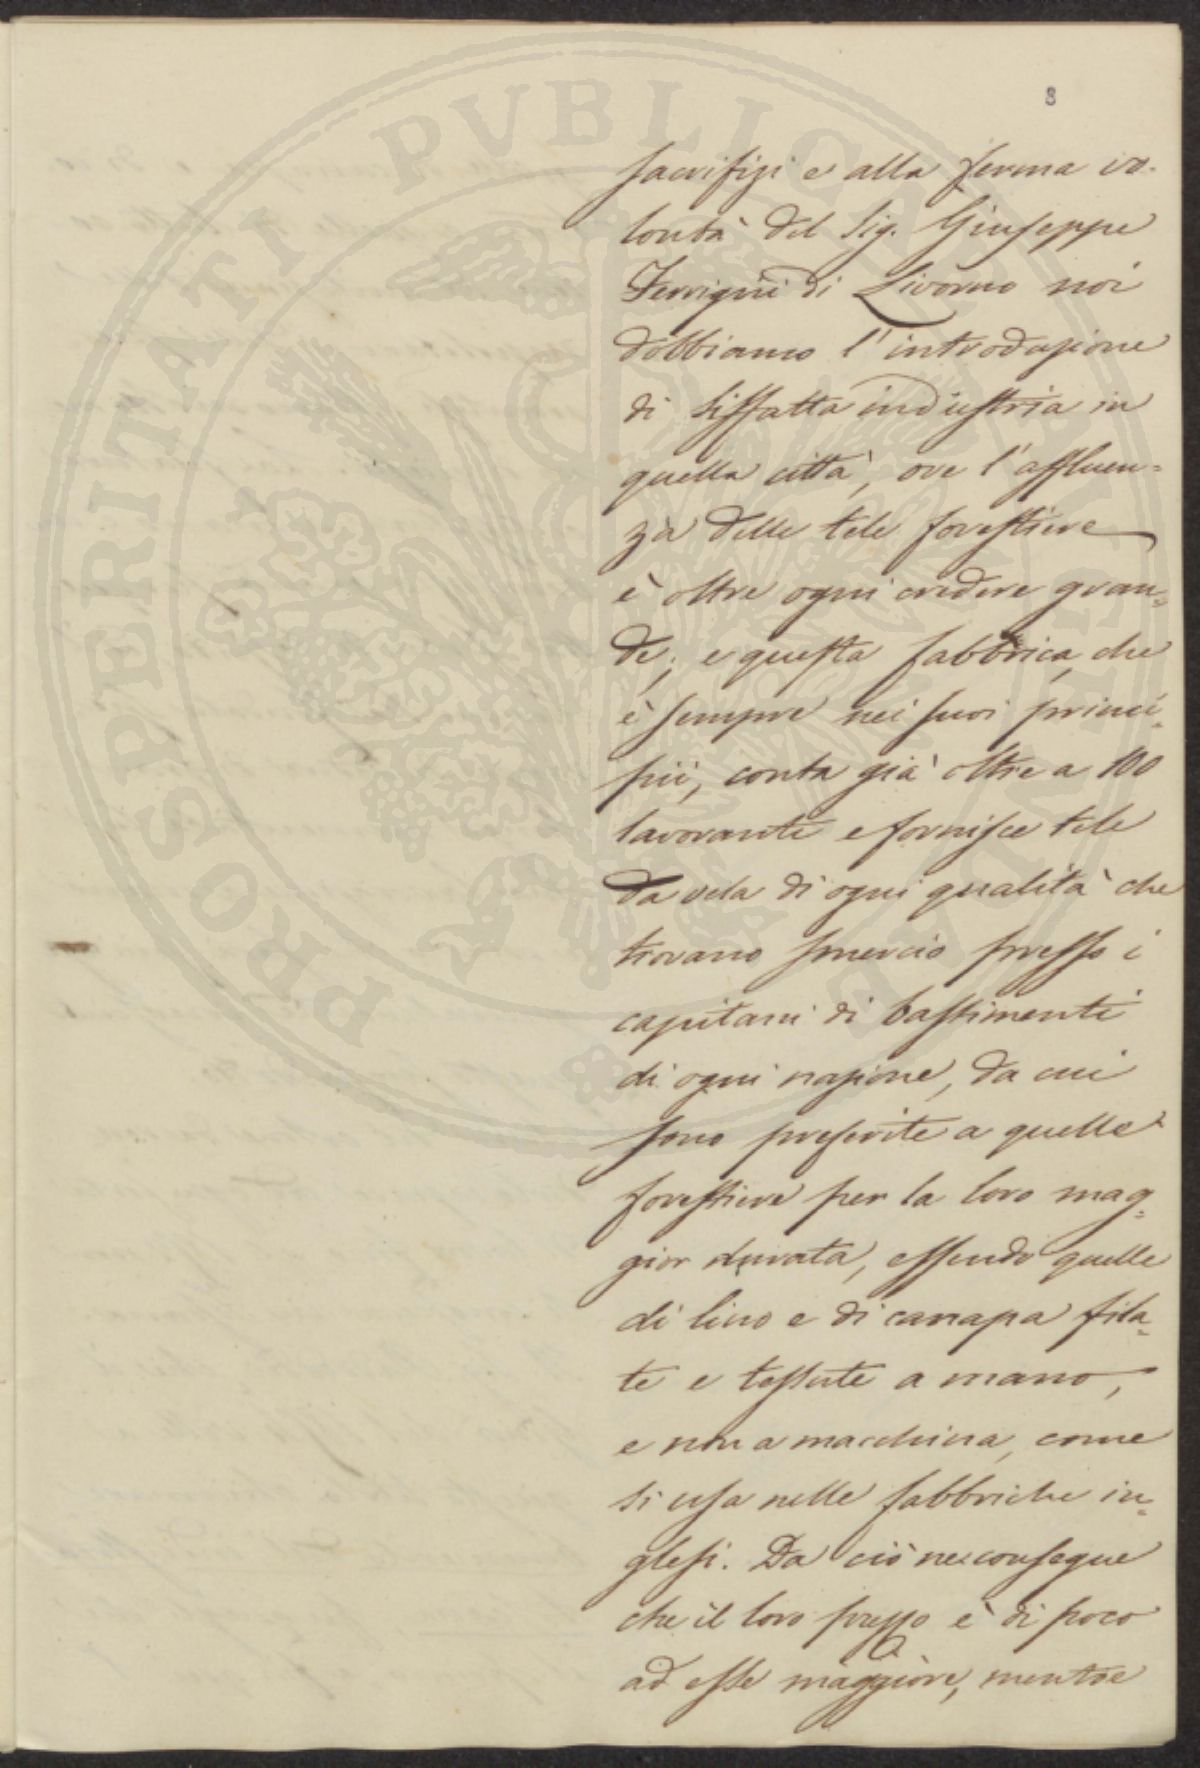 8
sacrifizi e alla ferma vo-
lontà del Sig. Giuseppe
Ferrigni di Livorno noi
dobbiamo l'introduzione
di siffatta industria in
quella città, ove l'affluen=
za delle tele forestiere
è oltre ogni credere gran=
de; e questa fabbrica, che
è sempre nei suoi princi=
pii, conta già oltre a 100
lavoranti e fornisce tele
da vela di ogni qualità che
trovano smercio presso i
capitani di bastimenti
di ogni nazione, da cui
sono preferite a quelle
forestiere per la loro mag=
gior durata, essendo quelle
di lino e di canapa fila=
te e tessute a mano,
e non a macchina, come
si usa nelle fabbriche in=
glesi. Da ciò ne consegue
che il loro prezzo è di poco
ad esse maggiore, mentre
PROSPERITATI PVBLICAE